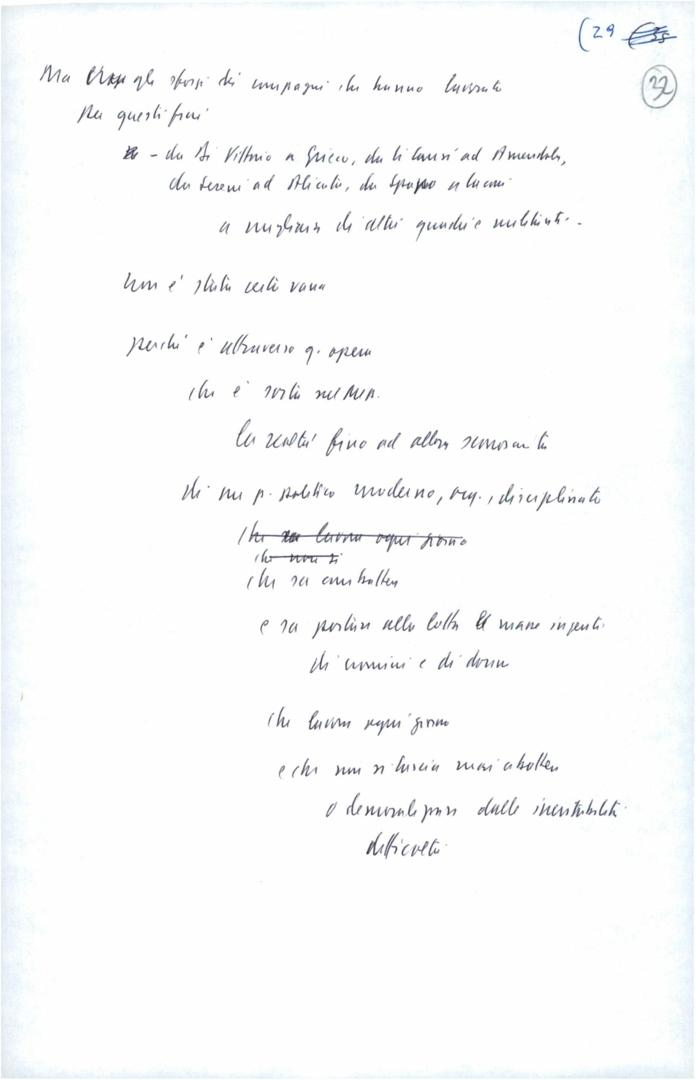 (29
32
Ma gli sforzi dei compagni che hanno lavorato
per questi fini
- da Di Vittorio a Grieco, da Li Causi ad Amendola,
da Sereni ad Alicata, da Spano a Laconi
a migliaia di altri quadri e militanti -
non è stata certo vana
perché è attraverso q. opera
che è sorta nel Mer.
la realtà fino ad allora sconosciuta
di un p. politico moderno, org., disciplinato
che lavora ogni giorno
che non si
che sa combattere
e sa portare alla lotta masse ingenti
di uomini e di donne
che lavora ogni giorno
e che non si lascia mai abbattere
o demoralizzare dalle inevitabili
difficoltà